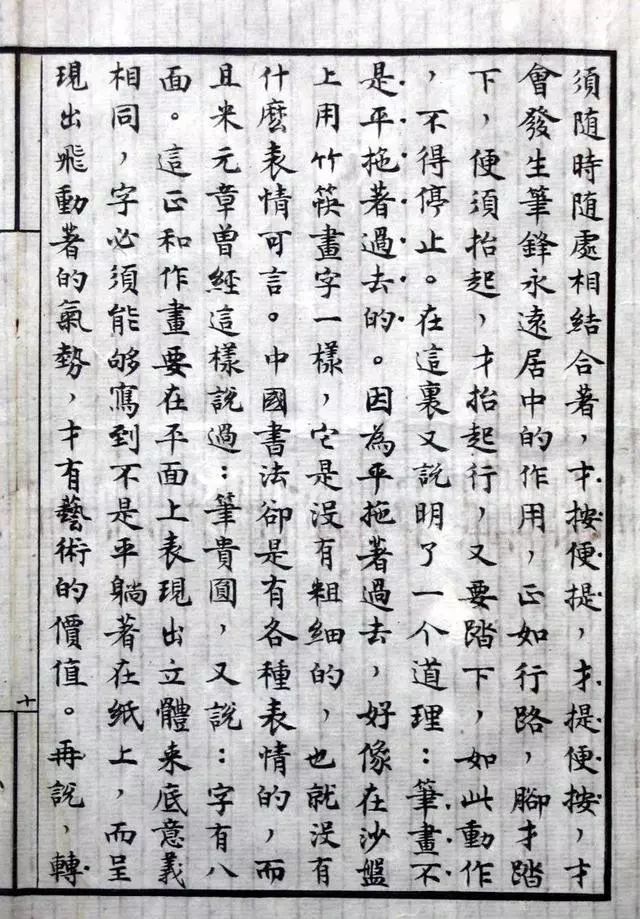 須隨時隨處相結合著，才按便提，才提便按，才
會發生筆鋒永遠居中的作用，正如行路，腳才踏
下，便須抬起，才抬起行，又要踏下，如此動作
，不得停止。在這裏又說明了一个道理：筆畫不
是平拖著過去的。因為平拖著過去，好像在沙盤
上用竹筷畫字一樣，它是沒有粗細的，也就沒有
什麼表情可言。中國書法卻是有各種表情的，而
且米元章曾經這樣說過：筆貴圓，又說：字有八
面。這正和作畫要在平面上表現出立體来底意義
相同，字必須能够寫到不是平躺著在紙上，而呈
現出飛動著的氣勢，才有藝術的價值。再說，轉
十